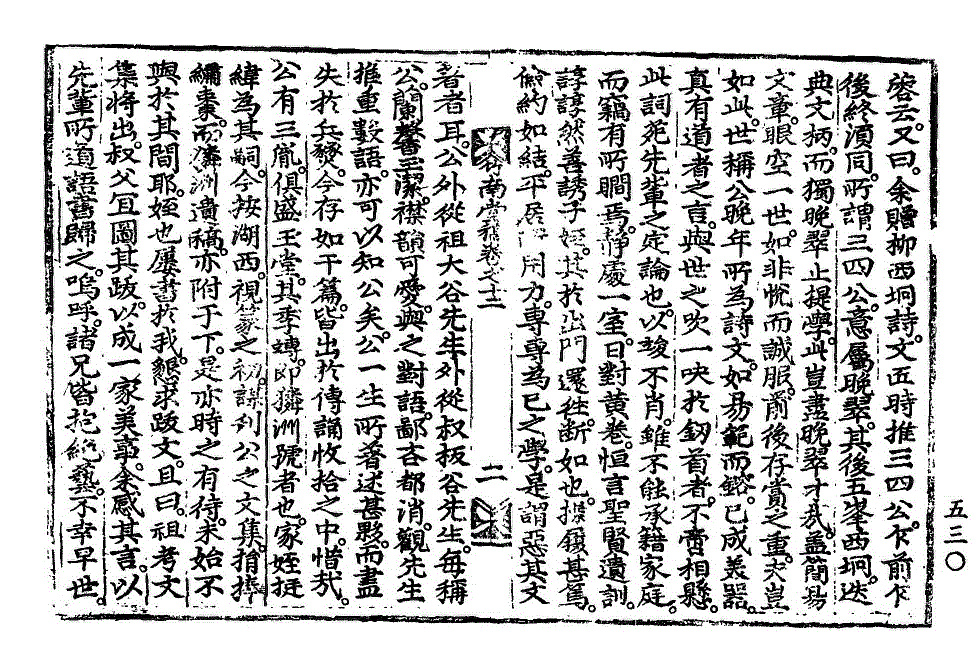 啓云。又曰。余贈柳西坰詩。文五時推三四公。乍前乍
後終須同。所謂三四公。意屬晚翠。其後五峯西坰。迭
典文柄。而獨晚翠止提學。此豈盡晚翠才哉。蓋簡易
文章。眼空一世。如非悅而誠服。前後存賞之重。夫豈
如此。世稱公晚年所為詩文。如昜範而銘。已成美器。
真有道者之言。與世之吹一吷於釰首者。不啻相懸。
此詞苑先輩之定論也。以竣不肖。雖不能承籍家庭。
而竊有所瞷焉。靜處一室。日對黃卷。恒言聖賢遺訓。
諄諄然善誘子姪。其於出門還往。断如也。操履甚篤。
儉約如結。平居 用力。專專為已之學。是謂惡其文
南堂稿卷之十二 二
著者耳。公外從祖大谷先生。外從叔板谷先生。每稱
公。蘭馨玉潔。襟韻可愛。與之對語。鄙吝都消。觀先生
推重數語。亦可以知公矣。公一生所著述甚夥。而盡
失於兵燹。今存如干篇。皆出於傳誦收拾之中。惜哉。
公有三胤。俱盛玉堂。其季㙻。即獜洲號者也。家姪珽
緯為其嗣。今按湖西。視篆之初。謀刋公之文集。捐捧
繡棗。而獜洲遺稿。亦附于下。是亦時之有待。未始不
與於其間耶。姪也屢書於我。懇求跋文。且曰。祖考文
集將出。叔父宜圖其跋。以成一家美事。余感其言。以
先輩所道語。書歸之。嗚呼。諸兄皆抱絶藝。不幸早世。
五三〇